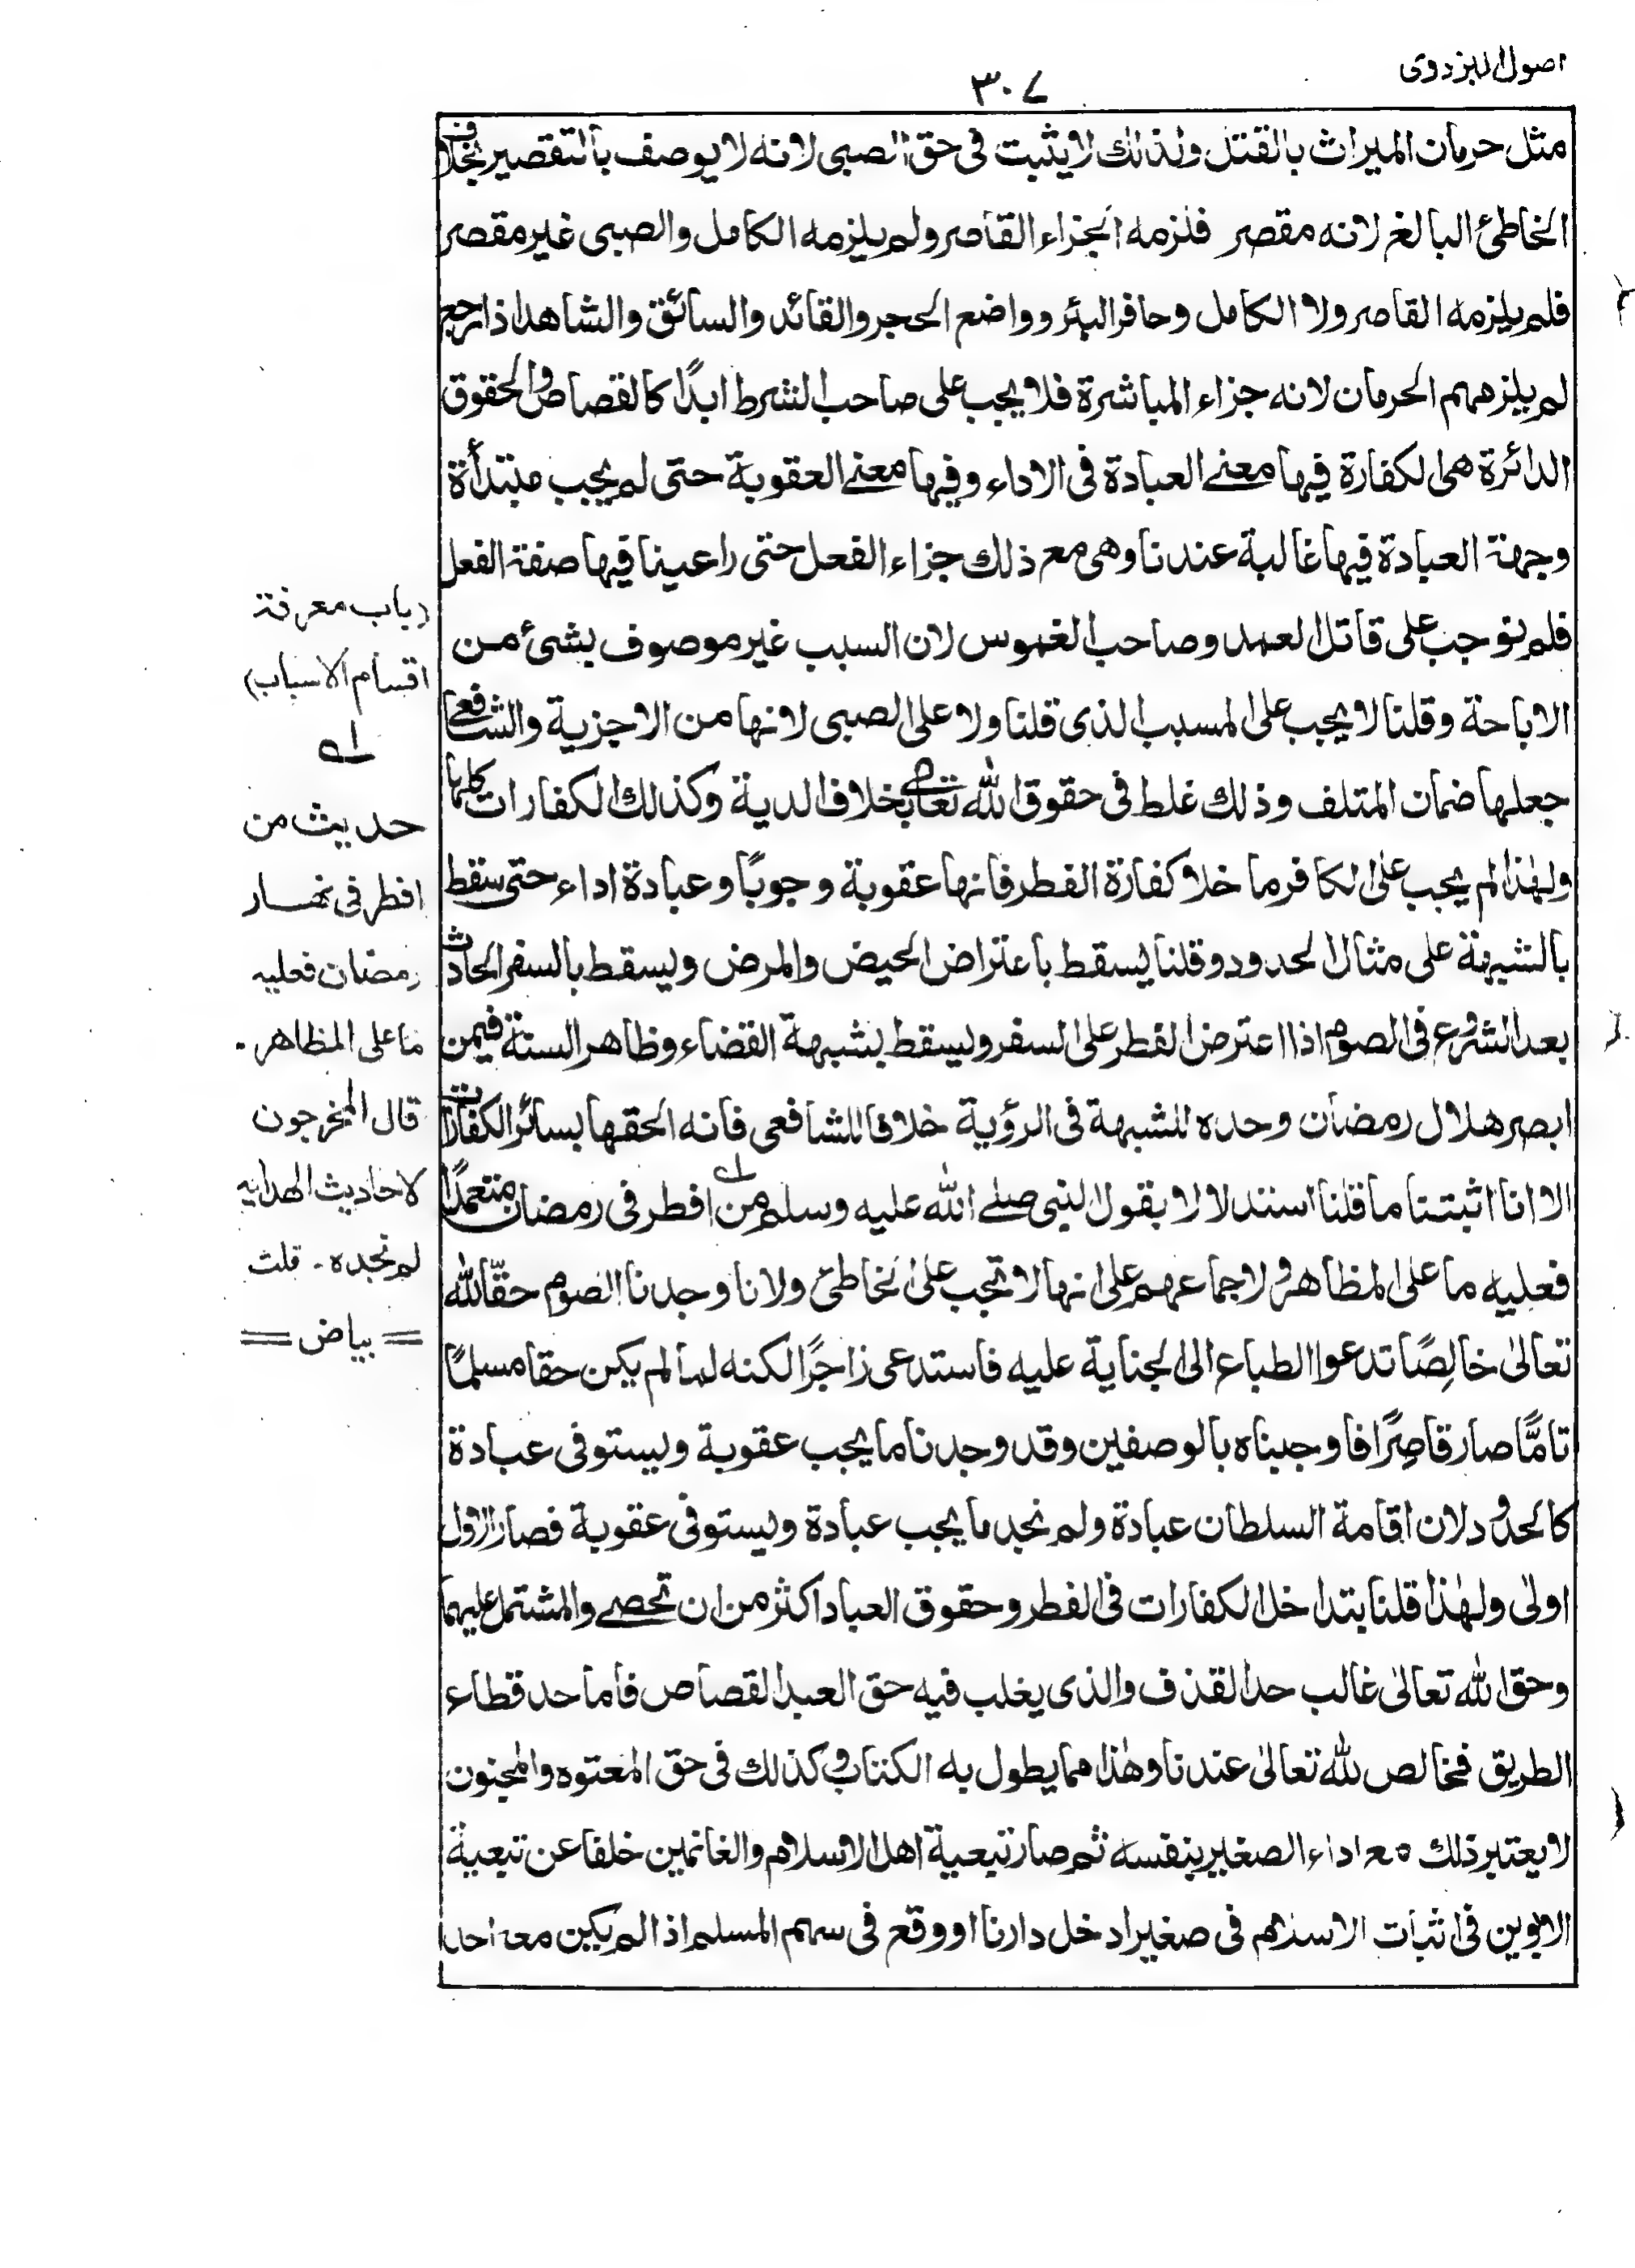 اصول البزدوی
٣٠٧
مثل حرمان الميراث بالقتل ولذلك لا يثبت فى حق الصبى لانه لا يوصف بالتقصير بخلاف
الخاطئ البالغ لانه مقصر فلزمه الجزاء القاصر ولم يلزمه الكامل والصبى غير مقصر
فلم يلزمه القاصر ولا الكامل وحافر البئر وواضع الحجر والقائد والسائق والشاهد اذا رجع
لم يلزمهم الحرمان لانه جزاء المباشرة فلا يجب على صاحب الشرط ابدًا كالقصاص والحقوق
الدائرة هى الكفارة فيها معنے العبادة فى الاداء وفيها معنے العقوبة حتى لم يجب مبتدأة
وجهة العبادة فيها غالبة عندنا وهى مع ذلك جزاء الفعل حتى راعينا فيها صفة الفعل
فلم نوجب على قاتل العمد وصاحب الغموس لان السبب غير موصوف بشئ من
الاباحة وقلنا لا يجب على المسبب الذى قلنا ولا على الصبى لانها من الاجزية والشافعے
جعلها ضمان المتلف وذلك غلط فى حقوق الله تعالے بخلاف الدية وكذلك الكفارات كلها
ولهٰذا لم يجب على الكافر ما خلا كفارة الفطر فانها عقوبة وجوبًا وعبادة اداء حتى سقط
بالشبهة على مثال الحدود وقلنا يسقط باعتراض الحيض والمرض ويسقط بالسفر الحادث
بعد الشروع فى الصوم اذا اعترض الفطر على السفر ويسقط بشبهة القضاء وظاهر السنة فيمن
ابصر هلال رمضان وحده للشبهة فى الرؤية خلافا للشافعى فانه الحقها بسائر الكفارات
الا انا اثبتنا ما قلنا استدلالا بقول النبى صلے الله عليه وسلم من افطر فى رمضان متعمدًا
فعليه ما على المظاهر ولاجماعهم على انها لا تجب على الخاطئ ولانا وجدنا الصوم حقًّا لله
تعالىٰ خالِصًا تدعوا الطباع الى الجناية عليه فاستدعى زاجرًا لكنه لما لم يكن حقا مسلمًا
تامًّا صار قاصِرًا فاوجبناه بالوصفين وقد وجدنا ما يجب عقوبة ويستوفى عبادة
كالحدود لان اقامة السلطان عبادة ولم نجد ما يجب عبادة ويستوفى عقوبة فصار الاول
اولىٰ ولهٰذا قلنا بتداخل الكفارات فى الفطر وحقوق العباد اكثر من ان تحصے والمشتمل عليهما
وحق الله تعالىٰ غالب حد القذف والذى يغلب فيه حق العبد القصاص فاما حد قطاع
الطريق فخالص لله تعالىٰ عندنا وهٰذا مما يطول به الكتاب وكذلك فى حق المعتوه والمجنون
لا يعتبر ذلك مع اداء الصغير بنفسه ثم صار تبعية اهل الاسلام والغانمين خلفا عن تبعية
الابوين فى اثبات الاسلام فى صغير ادخل دارنا او وقع فى سهم المسلم اذا لم يكن معه احد
(باب معرفة
اقسام الاسباب)
حديث من
افطر فى نهار
رمضان فعليه
ما على المظاهر.
قال المخرجون
لاحاديث الهدايه
لم نجده . قلت
= بياض =